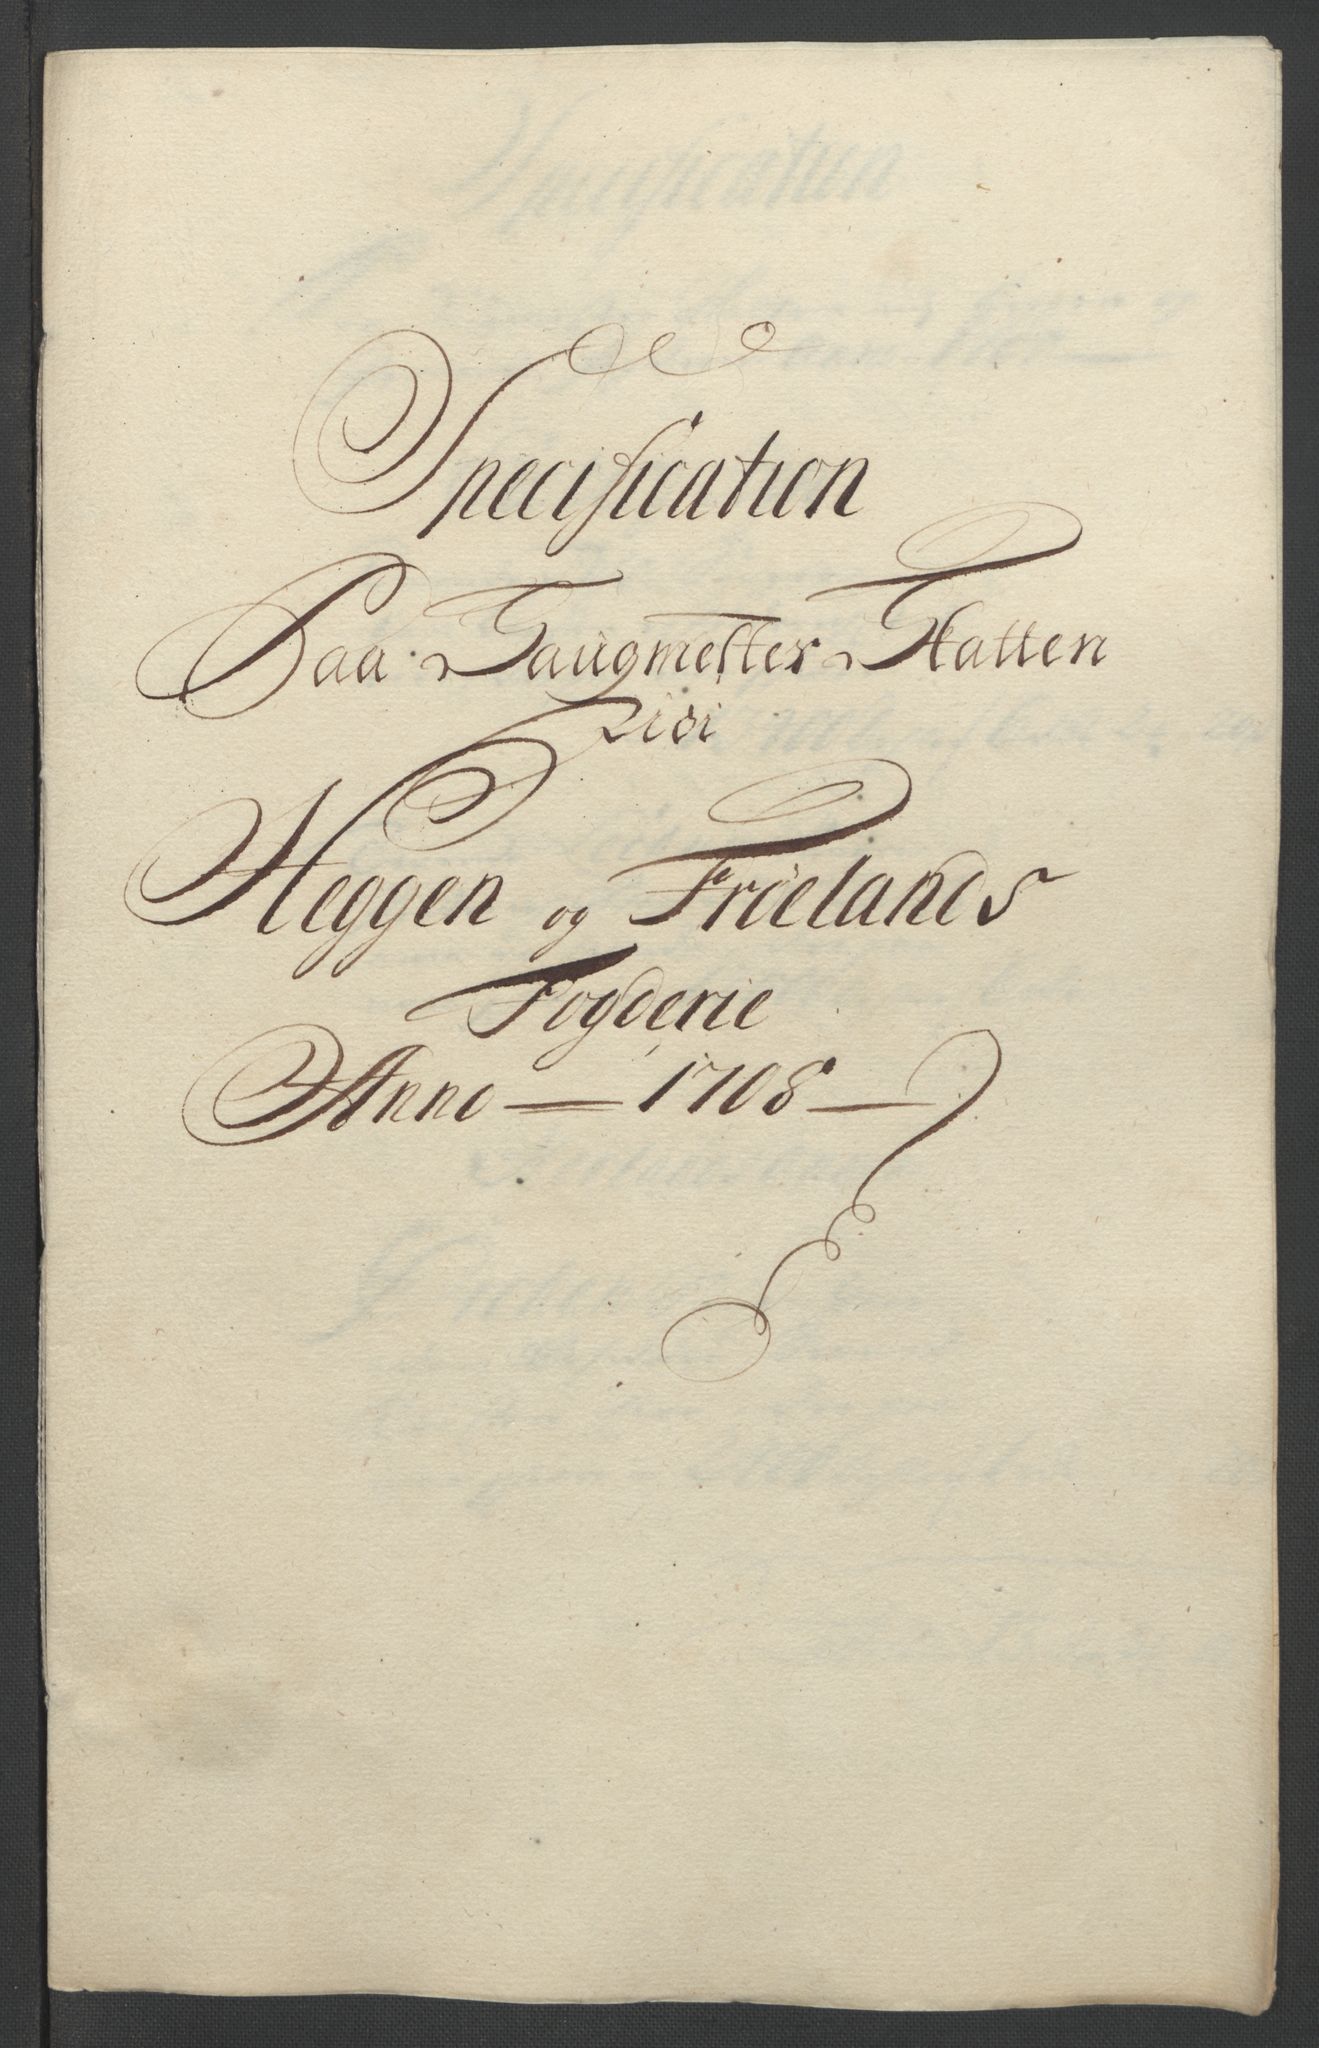 Specification
Paa Laugmester Skatten
udi
Heggen og Frølands
Fogderie
Anno — 1708 —